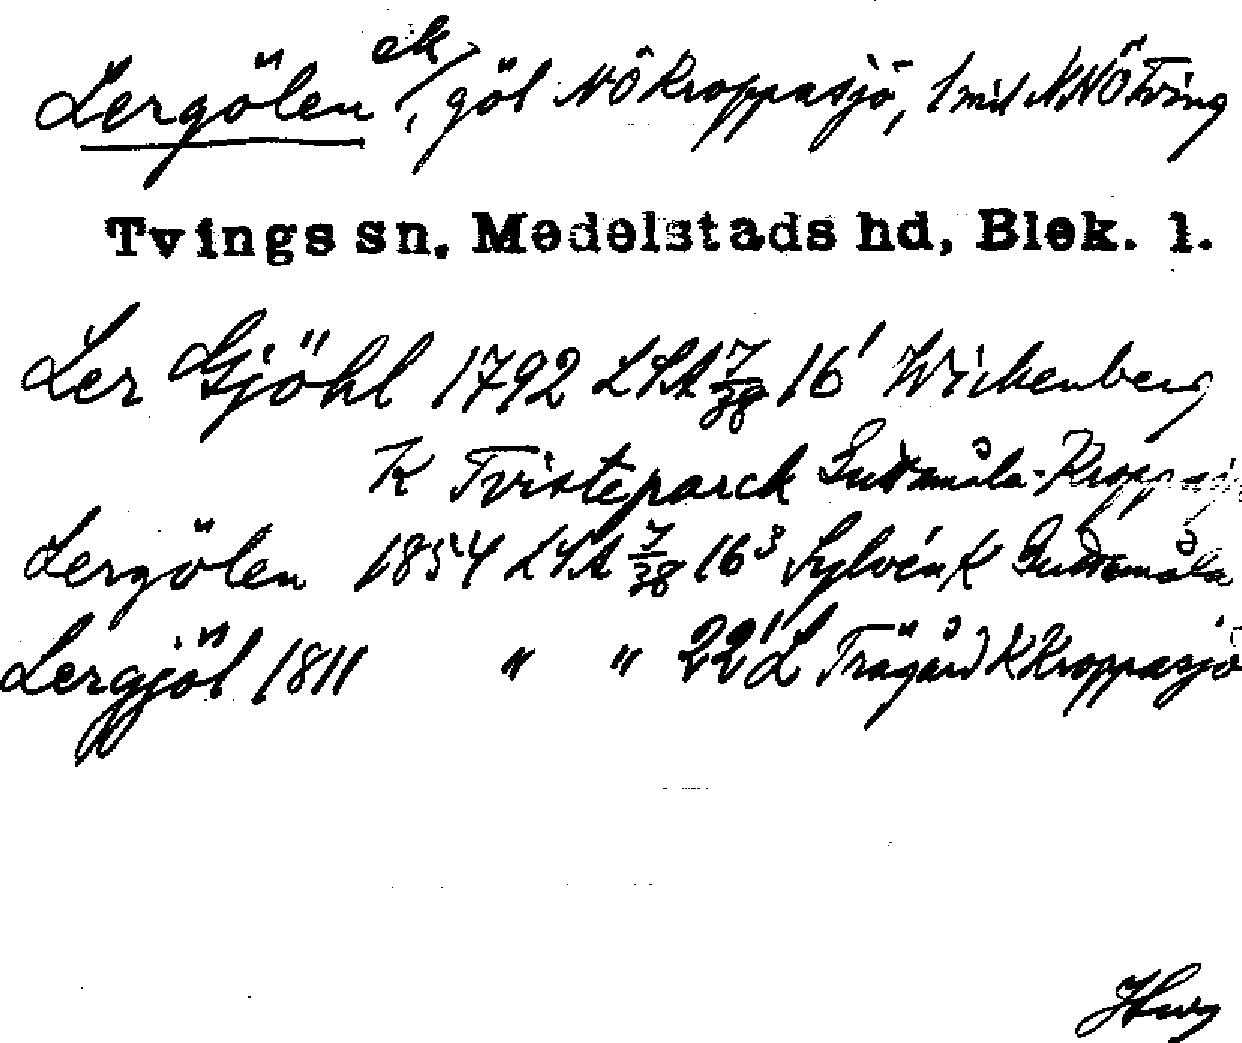 Lergölen ek, göl NÖ Kroppasjö, 1 mil NNÖ Tving
Tvings sn, Medelstads hd, Blek. l.
Ler Gjöhl 1792 LSA 7/38 16¹ Wickenberg
K Tvisteparck Guttamåla-Kroppasjö
Lergölen 1854 LSA 7/38 16³ Sylvén K Guttamåla
Lergjöl 1811 " " 22¹ L Trägård K Kroppasjö